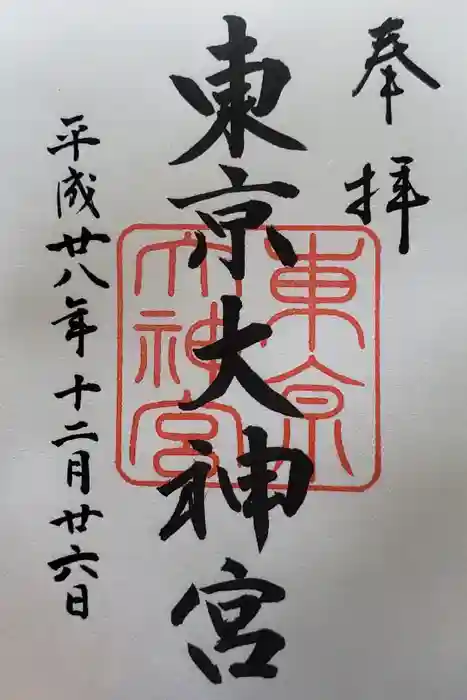 奉拝
東京大神宮
平成廿八年十二月廿六日
東京
大神宮